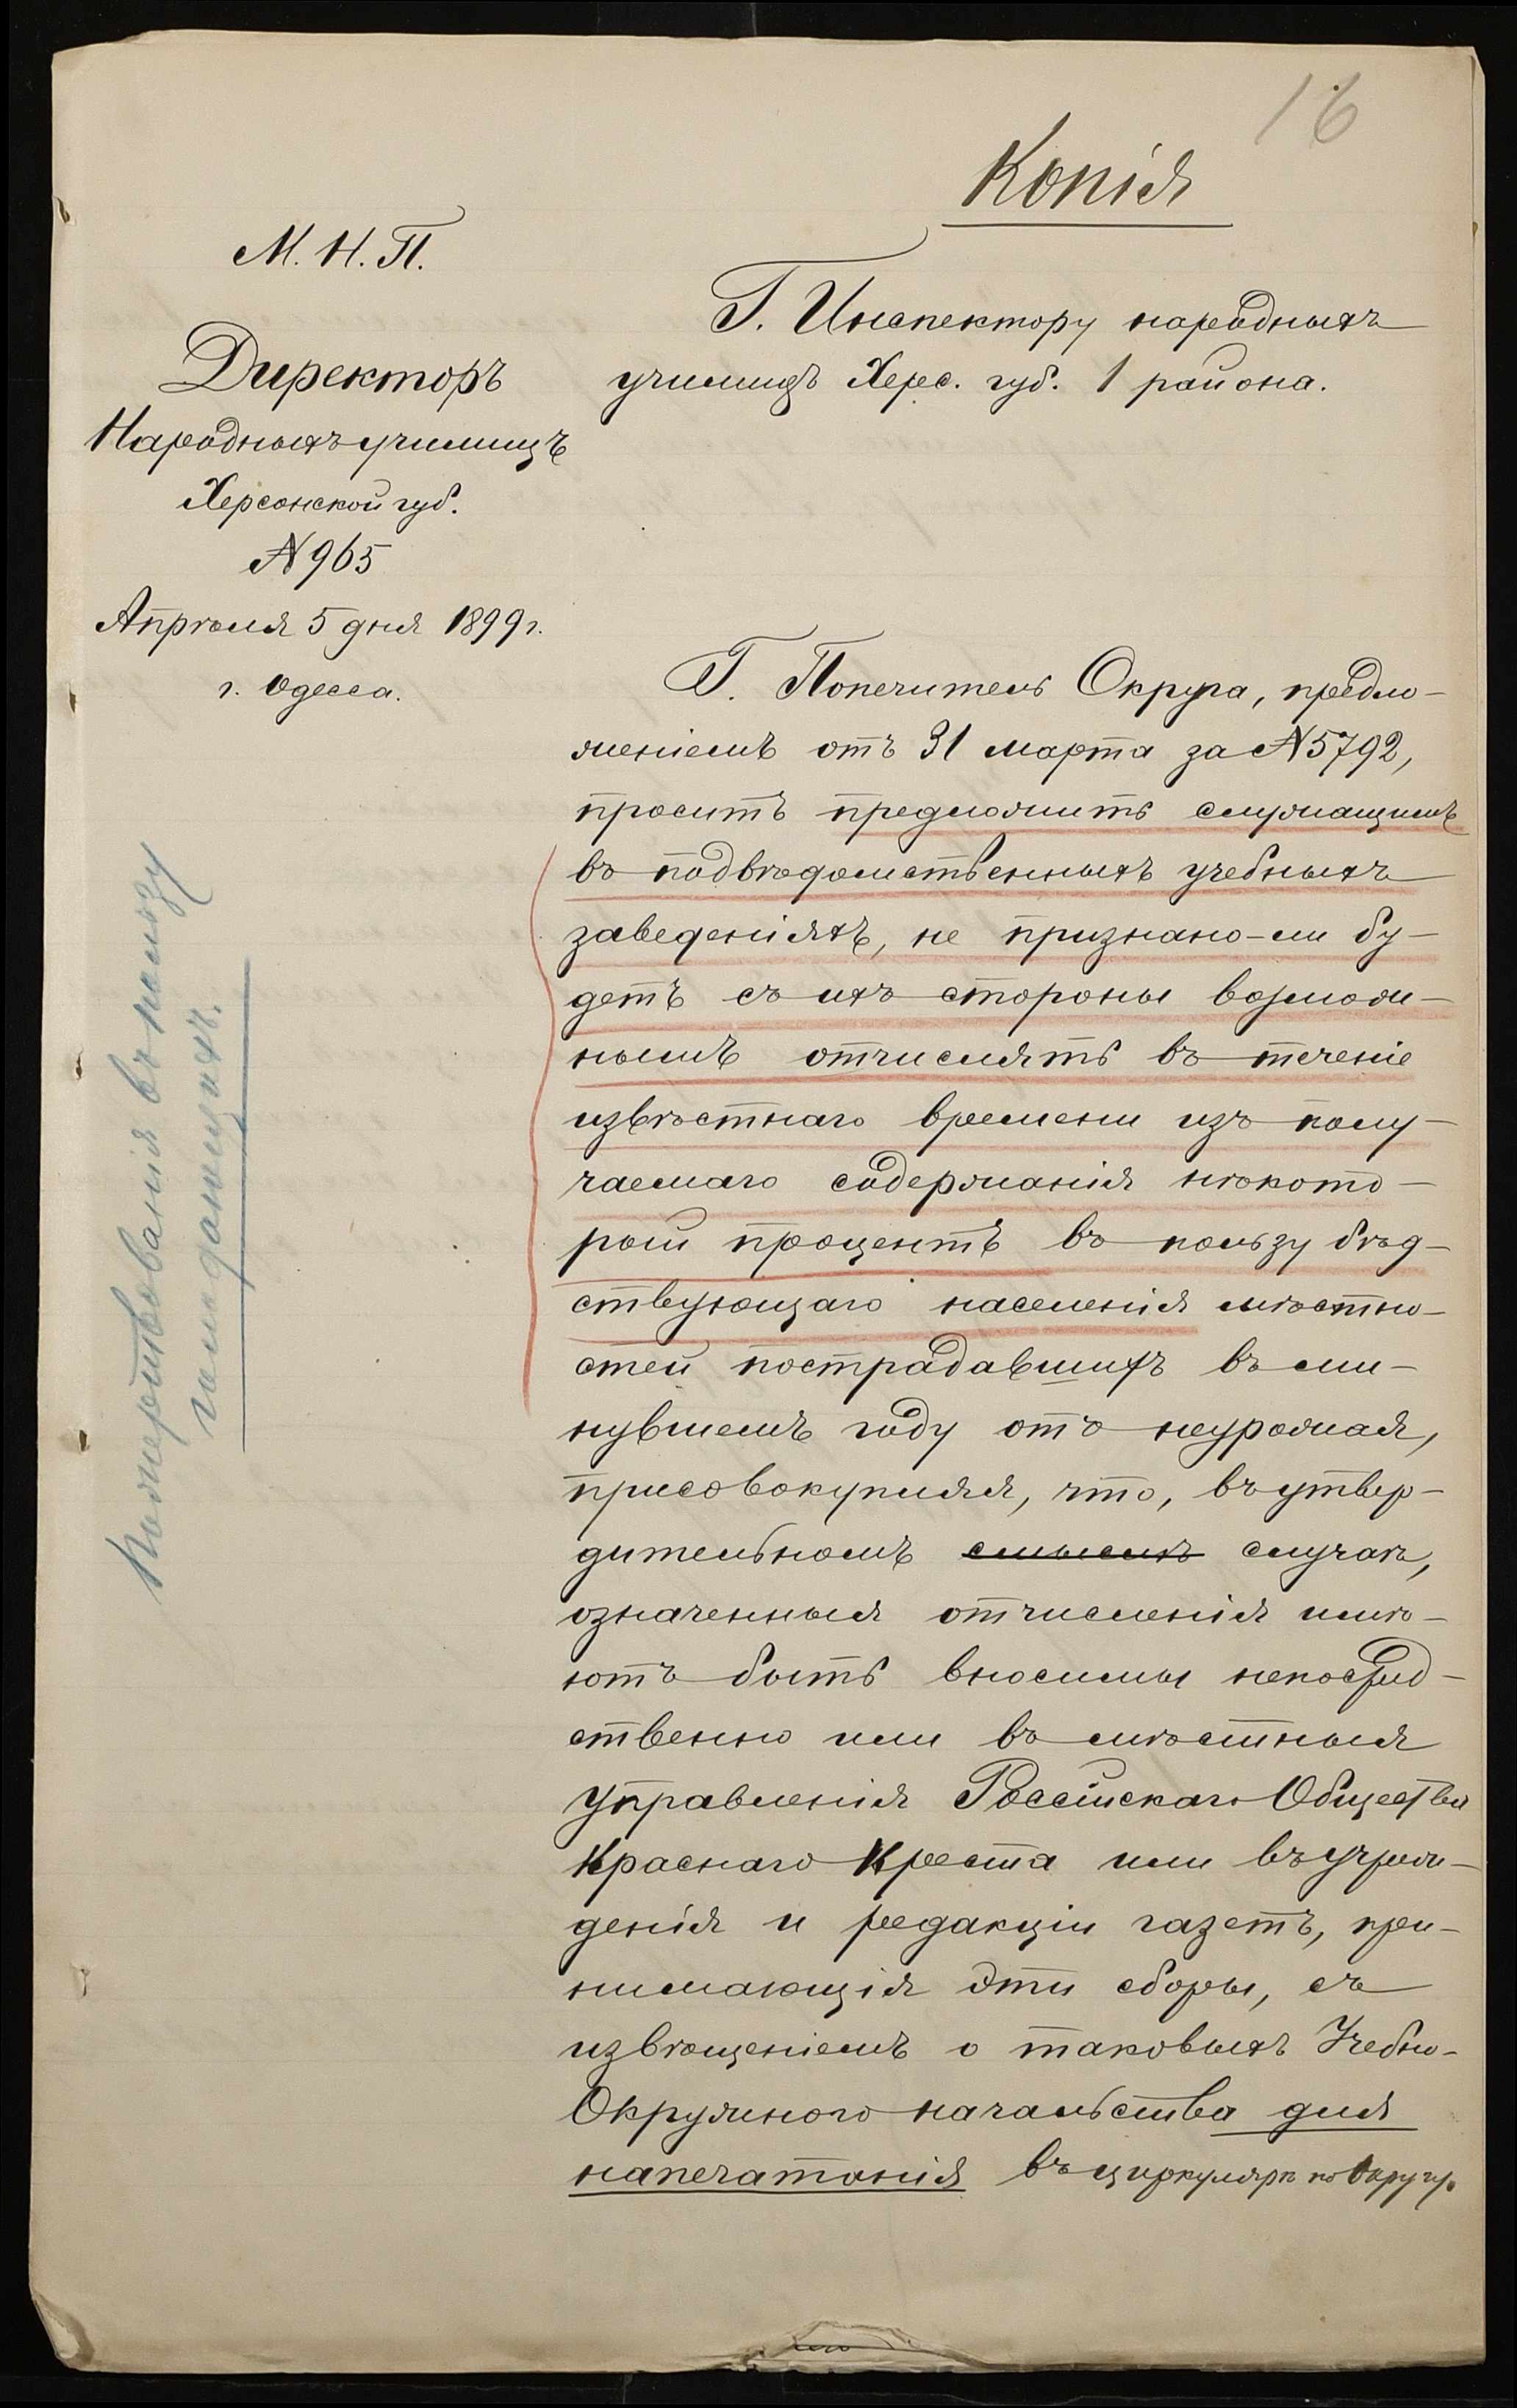 16
Копія
М. Н. П.
Директоръ
Народныхъ училищъ
Херсонской губ.
№ 965
Апрѣля 5 дня 1899 г.
г. Одесса.
Г. Инспектору народныхъ
училищъ Херс. губ. 1 района.
Г. Попечитель Округа, предло-
женіемъ отъ 31 марта за № 5792,
проситъ предложить служащимъ
въ подвѣдомственныхъ учебныхъ
заведеніяхъ, не признано-ли бу-
детъ съ ихъ стороны возмож-
нымъ отчислять въ теченіе
извѣстнаго времени изъ полу-
чаемаго содержанія нѣкото-
рый процентъ въ пользу бѣд-
ствующаго населенія мѣстно-
стей пострадавшихъ въ ми-
нувшемъ году отъ неурожая,
присовокупляя, что, въ утвер-
дительномъ смыслѣ случаѣ,
означенныя отчисленія имѣ-
ютъ быть вносимы непосред-
ственно или въ мѣстныя
управленія Россійскаго Общества
Краснаго Креста или въ учреж-
денія и редакціи газетъ, при-
нимающія эти сборы, съ
извѣщеніемъ о таковыхъ Учебно-
Окружного начальства для
напечатанія въ циркулярѣ по Округу.
Пожертвованія въ пользу
голодающихъ.